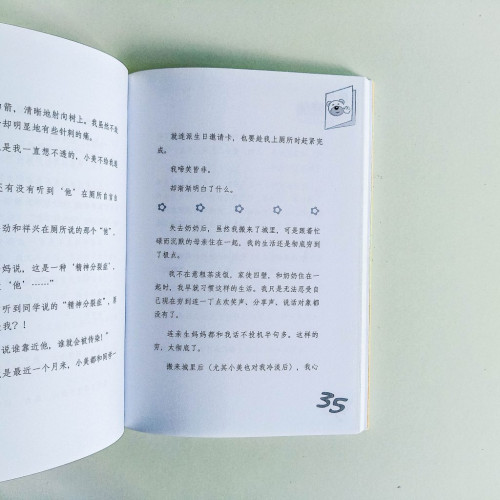 箭，清晰地射向树上。我虽然不
却明显地有些针刺的痛。
是我一直想不透的，小美不给我
还有没有听到‘他’在厕所自言自
劲和祥兴在厕所说的那个“他”，
妈说，这是一种‘精神分裂症’，
‘他’……”
听到同学说的“精神分裂症”，
我？！
说谁靠近他，谁就会被传染！”
是最近一个月来，小美都和同学一
就连派生日邀请卡，也要趁我上厕所时赶紧完
成。
我啼笑皆非。
却渐渐明白了什么。
失去奶奶后，虽然我搬来了城里，可是跟着忙
碌而沉默的母亲住在一起，我的生活还是彻底穷到
了极点。
我不在意粗茶淡饭，家徒四壁，和奶奶住在一
起时，我早就习惯这样的生活。我只是无法忍受自
己现在穷到连一丁点欢笑声、分享声、说话对象都
没有了。
连亲生妈妈都和我话不投机半句多。这样的
穷，太彻底了。
搬来城里后（尤其小美也对我冷淡后），我心
35